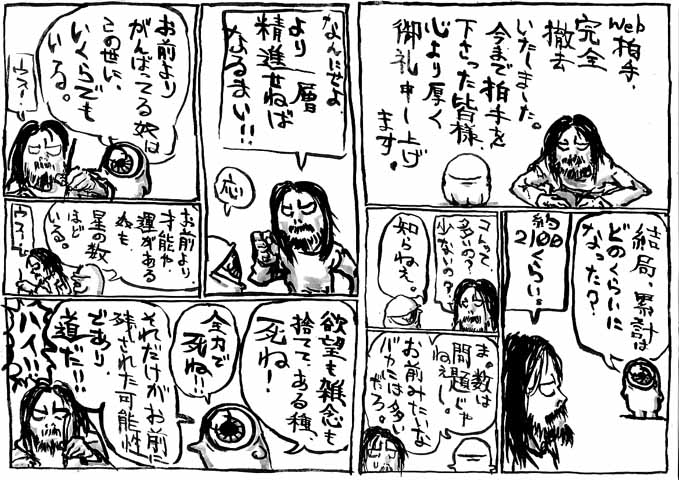 Web拍手、
完全
撤去
いたしました。
今まで拍手を
下さった皆様、
心より厚く
御礼申し上げ
ます。
結局、累計は
どのくらいに
なった？
約
2100
くらい。
コレって、
多いの？
少ないの？
知らねぇ。
ま。数は
問題じゃ
ねぇし。
お前みたいな
バカには多い
だろ。
なんにせよ、
より一層
精進せねば
なるまい!!
応
お前より
がんばってる奴は
この世に、
いくらでも
いる。
ウス！
お前より
才能や
運がある
奴も、
星の数
ほど
いる。
ウス！
欲望も雑念も
捨てて、ある種、
死ね！
全力で
死ね!!
それだけがお前に
残された可能性
であり、
道だ!!
ハイ!!